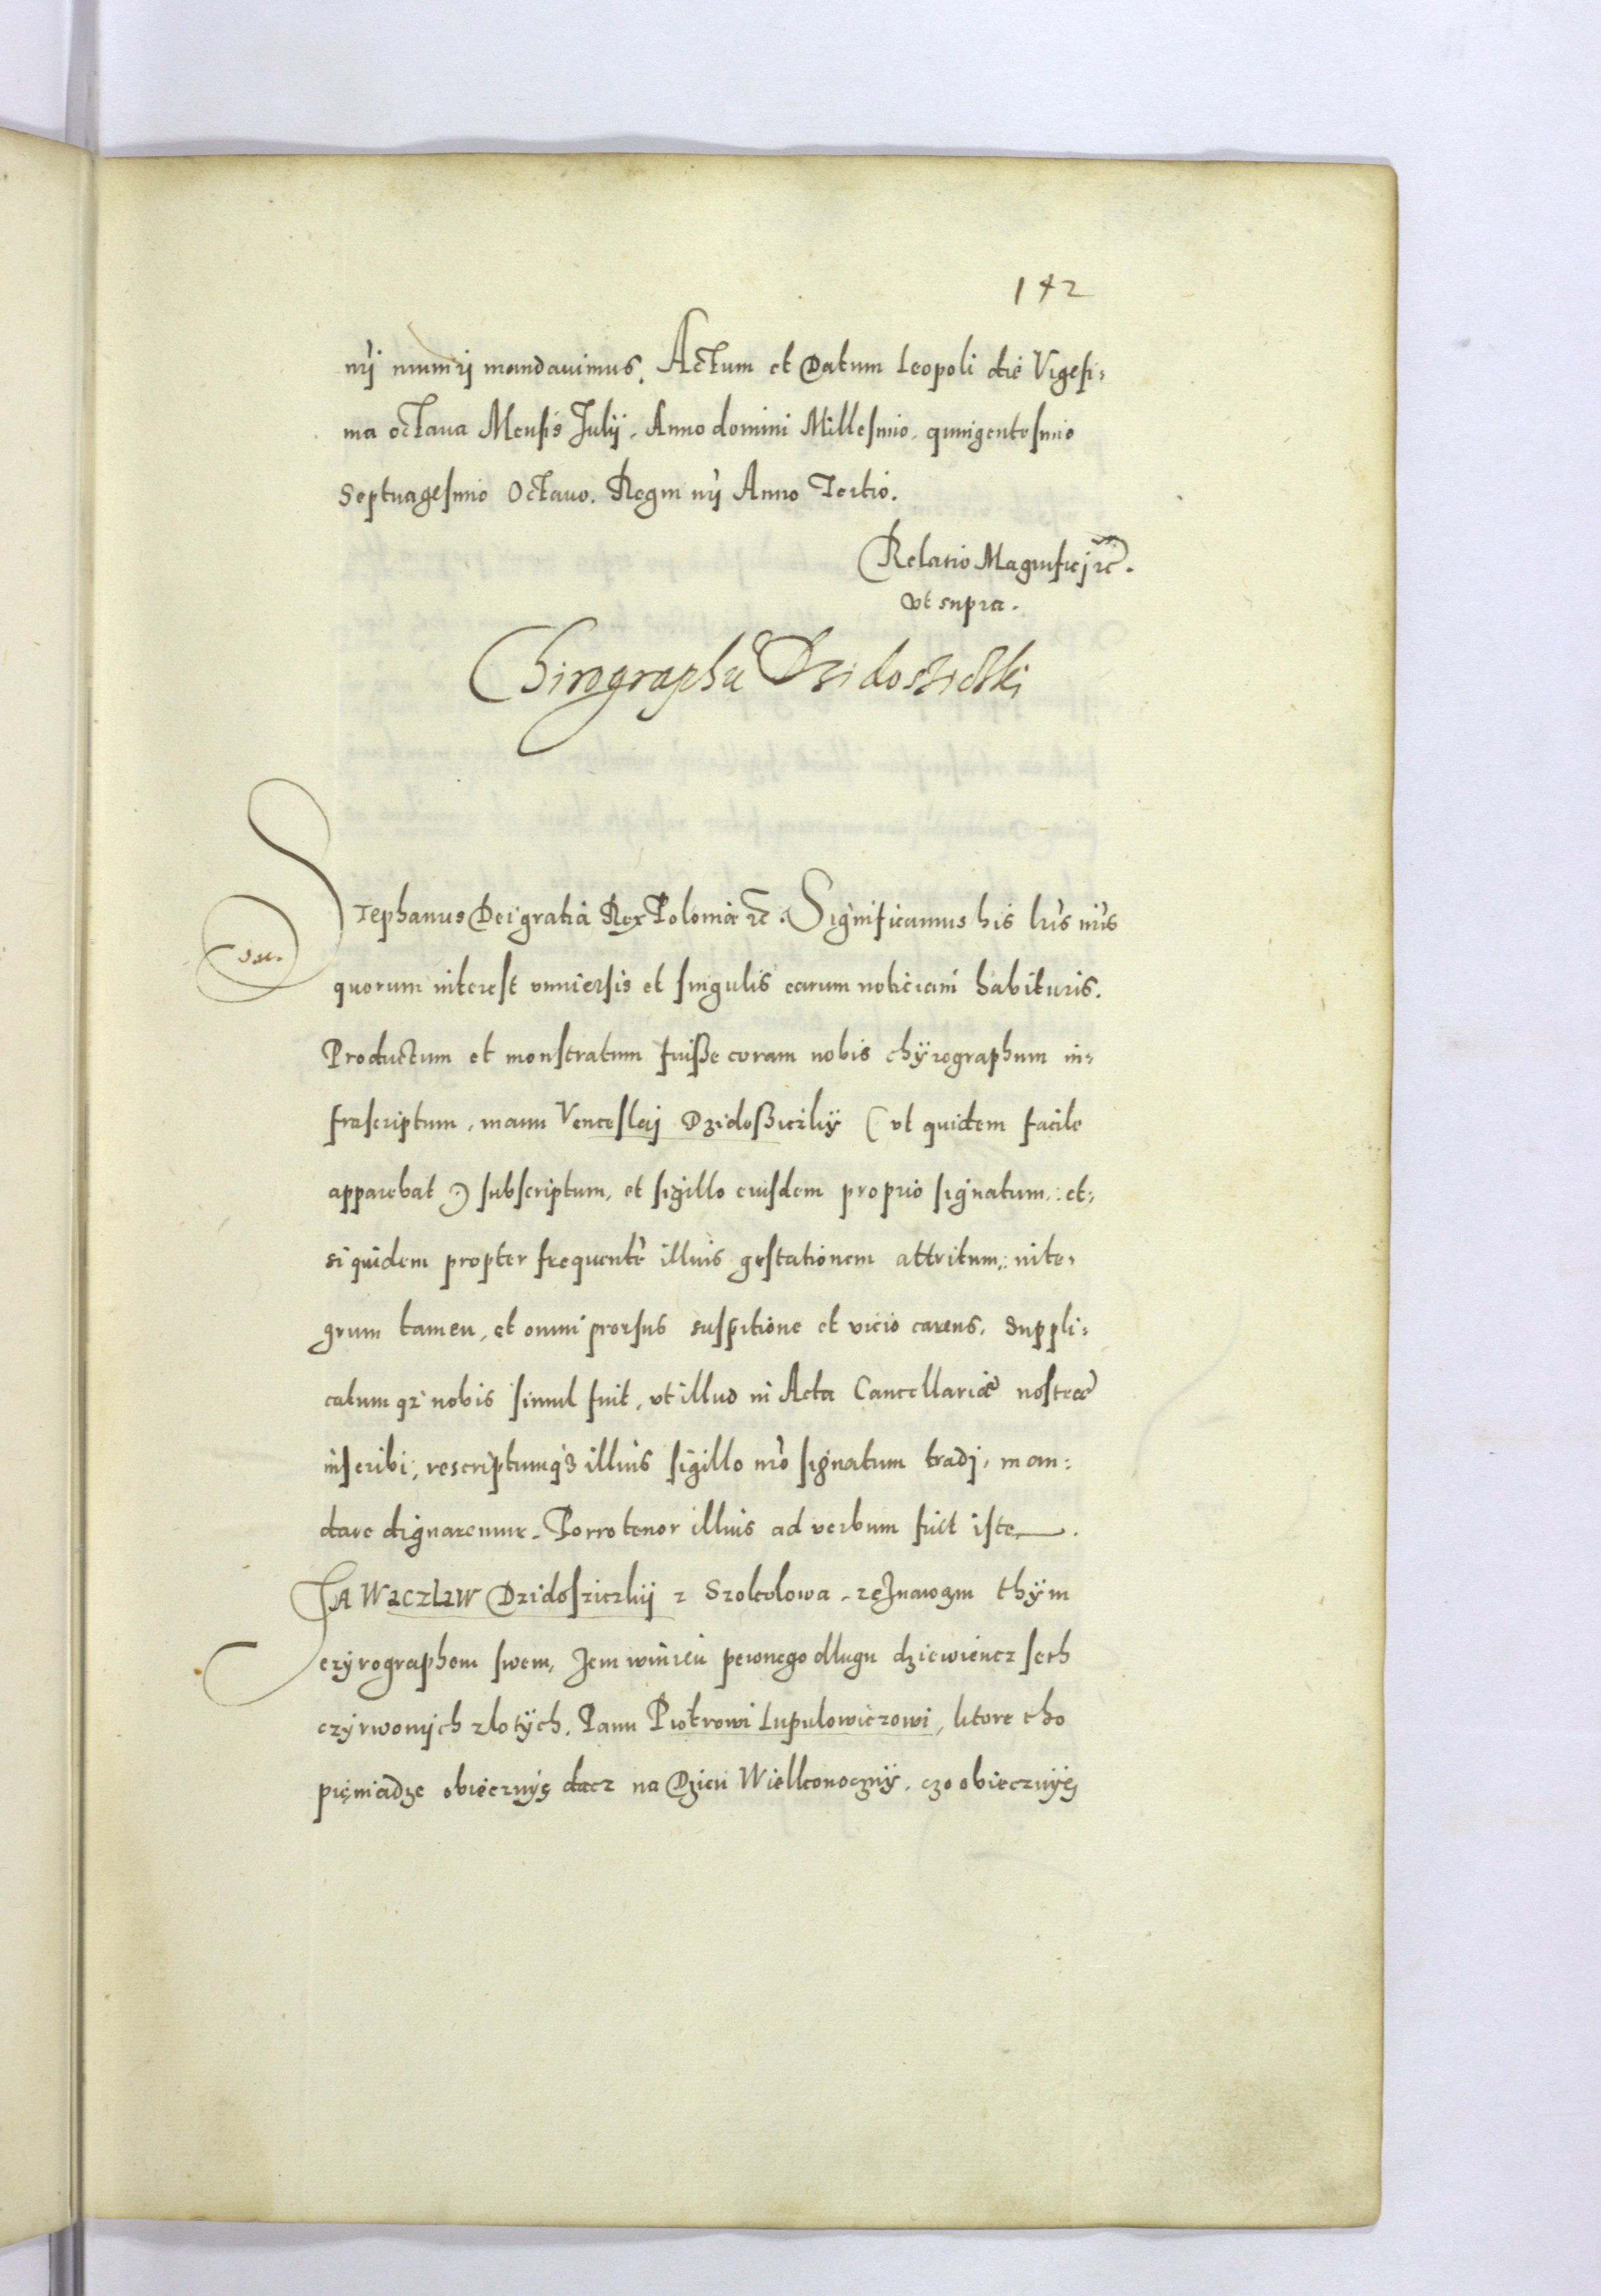 142
nrj muniri mandauimus. Actum et Datum Leopoli die Vigesi:
ma octaua Mensis Julij. Anno domini Millesimo. quingentesimo
Septuagesimo Octauo. Regni nrj Anno Tertio.
Relatio Magnificj etc.
vt supra.
Chirographũ Dzidosziczki
Stephanus Dei gratia Rex Poloniæ etc. Significamus his lris nris
quorum interest vniuersis et singulis earum noticiam habituris.
Productum et monstratum fuiße coram nobis chÿrographum in:
frascriptum, manu Venceslaj Dzidoßiczkij (vt quidem facile
apparebat) subscriptum, et sigillo eiusdem proprio signatum: et:
si quidem propter frequentẽ illius gestationem attritum: inte:
grum tamen, et omni prorsus suspitione et vicio carens. Suppli:
catum qz nobis simul fuit, vt illud in Acta Cancellariæ nostræ
inscribi, rescriptumqz illius sigillo nro signatum tradj, man:
dare dignaremur. Porro tenor illius ad verbum fuit iste.
JA Waczlaw Dzidosziczkij z Szokolowa. zeznawam thÿm
czyrographem swem, Jem winien pewnego dlugu dziewiencz seth
czyrwonych zlotÿch. Panu Piotrowi Lupulowiczowi, ktore tho
pięniadze obieczuyę dacz na Dzien Wielkonocznÿ. czo obieczuyę